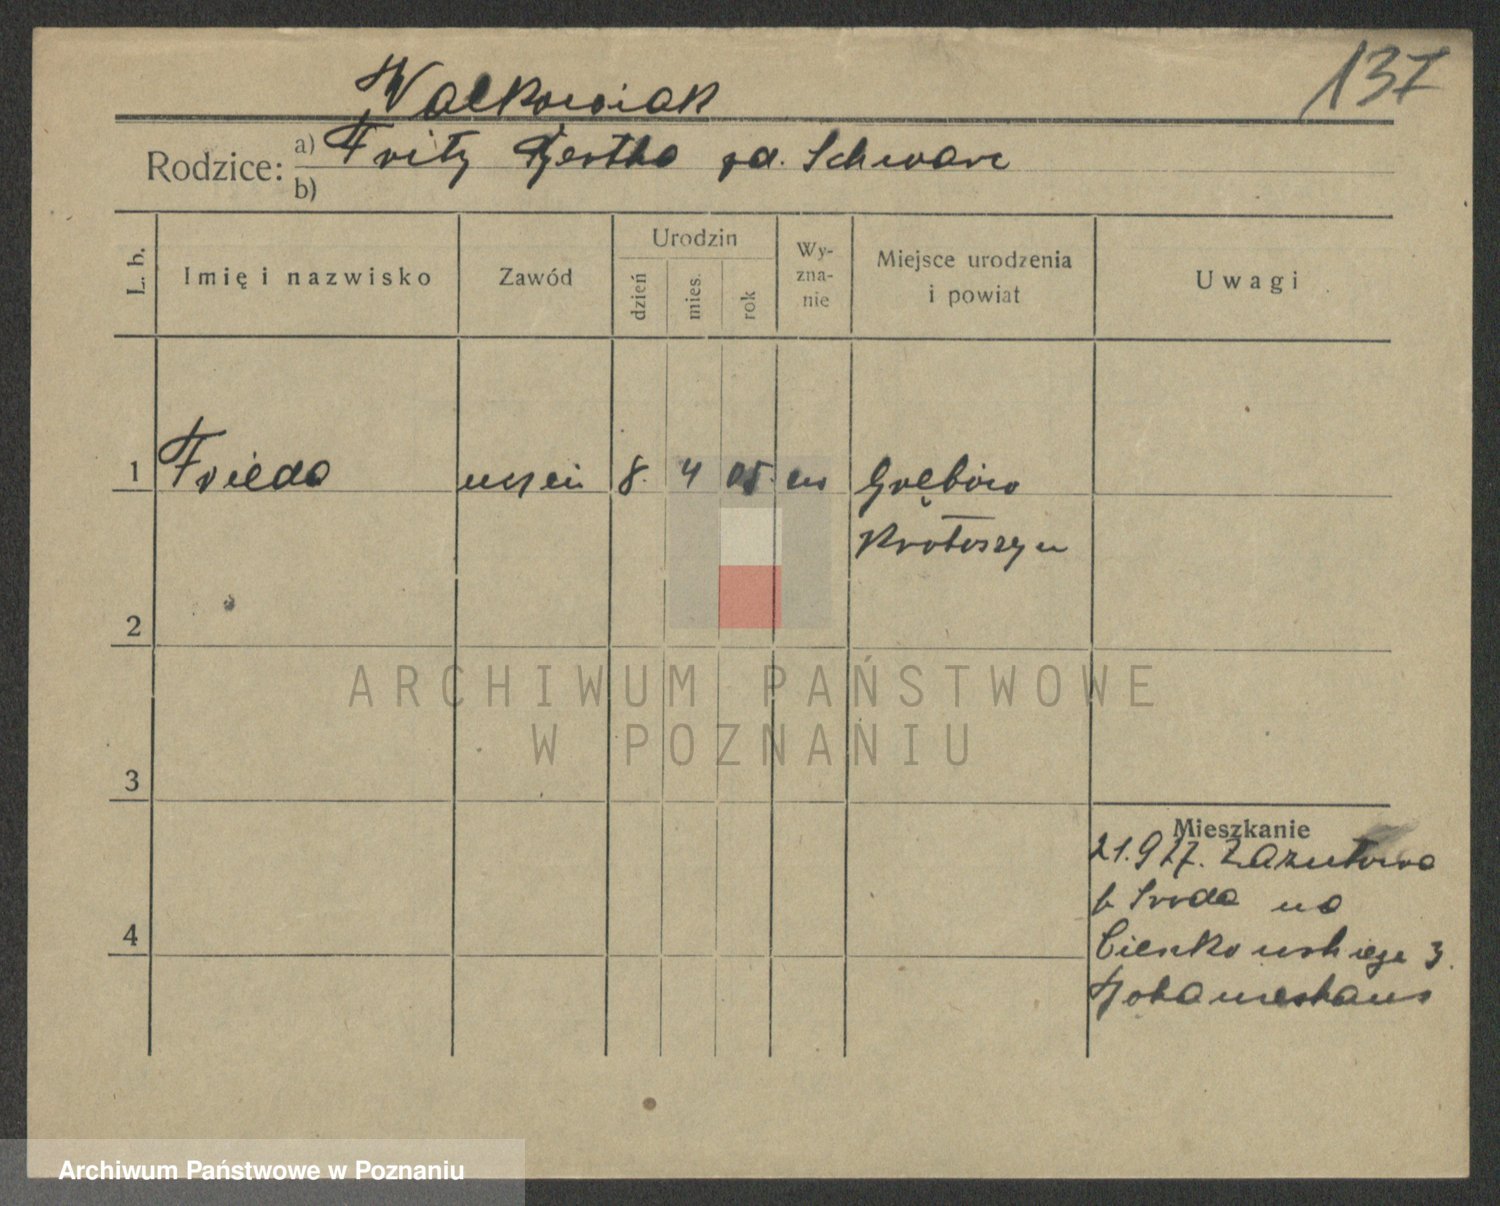 137
Walkowiak
Rodzice: a) Fritz Hertha zd. Schwarc
b)
L. b. Imię i nazwisko Zawód Urodzin dzień mies. rok Wy-zna-nie Miejsce urodzenia i powiat Uwagi
1 Frieda uczeń 8. 4 05. ew Grębów
Krotoszyn
2
ARCHIWUM PAŃSTWOWE
W POZNANIU
3
Mieszkanie
21.9 27.
Środa na
4
Cieszkowskiego 3.
Archiwum Państwowe w Poznaniu